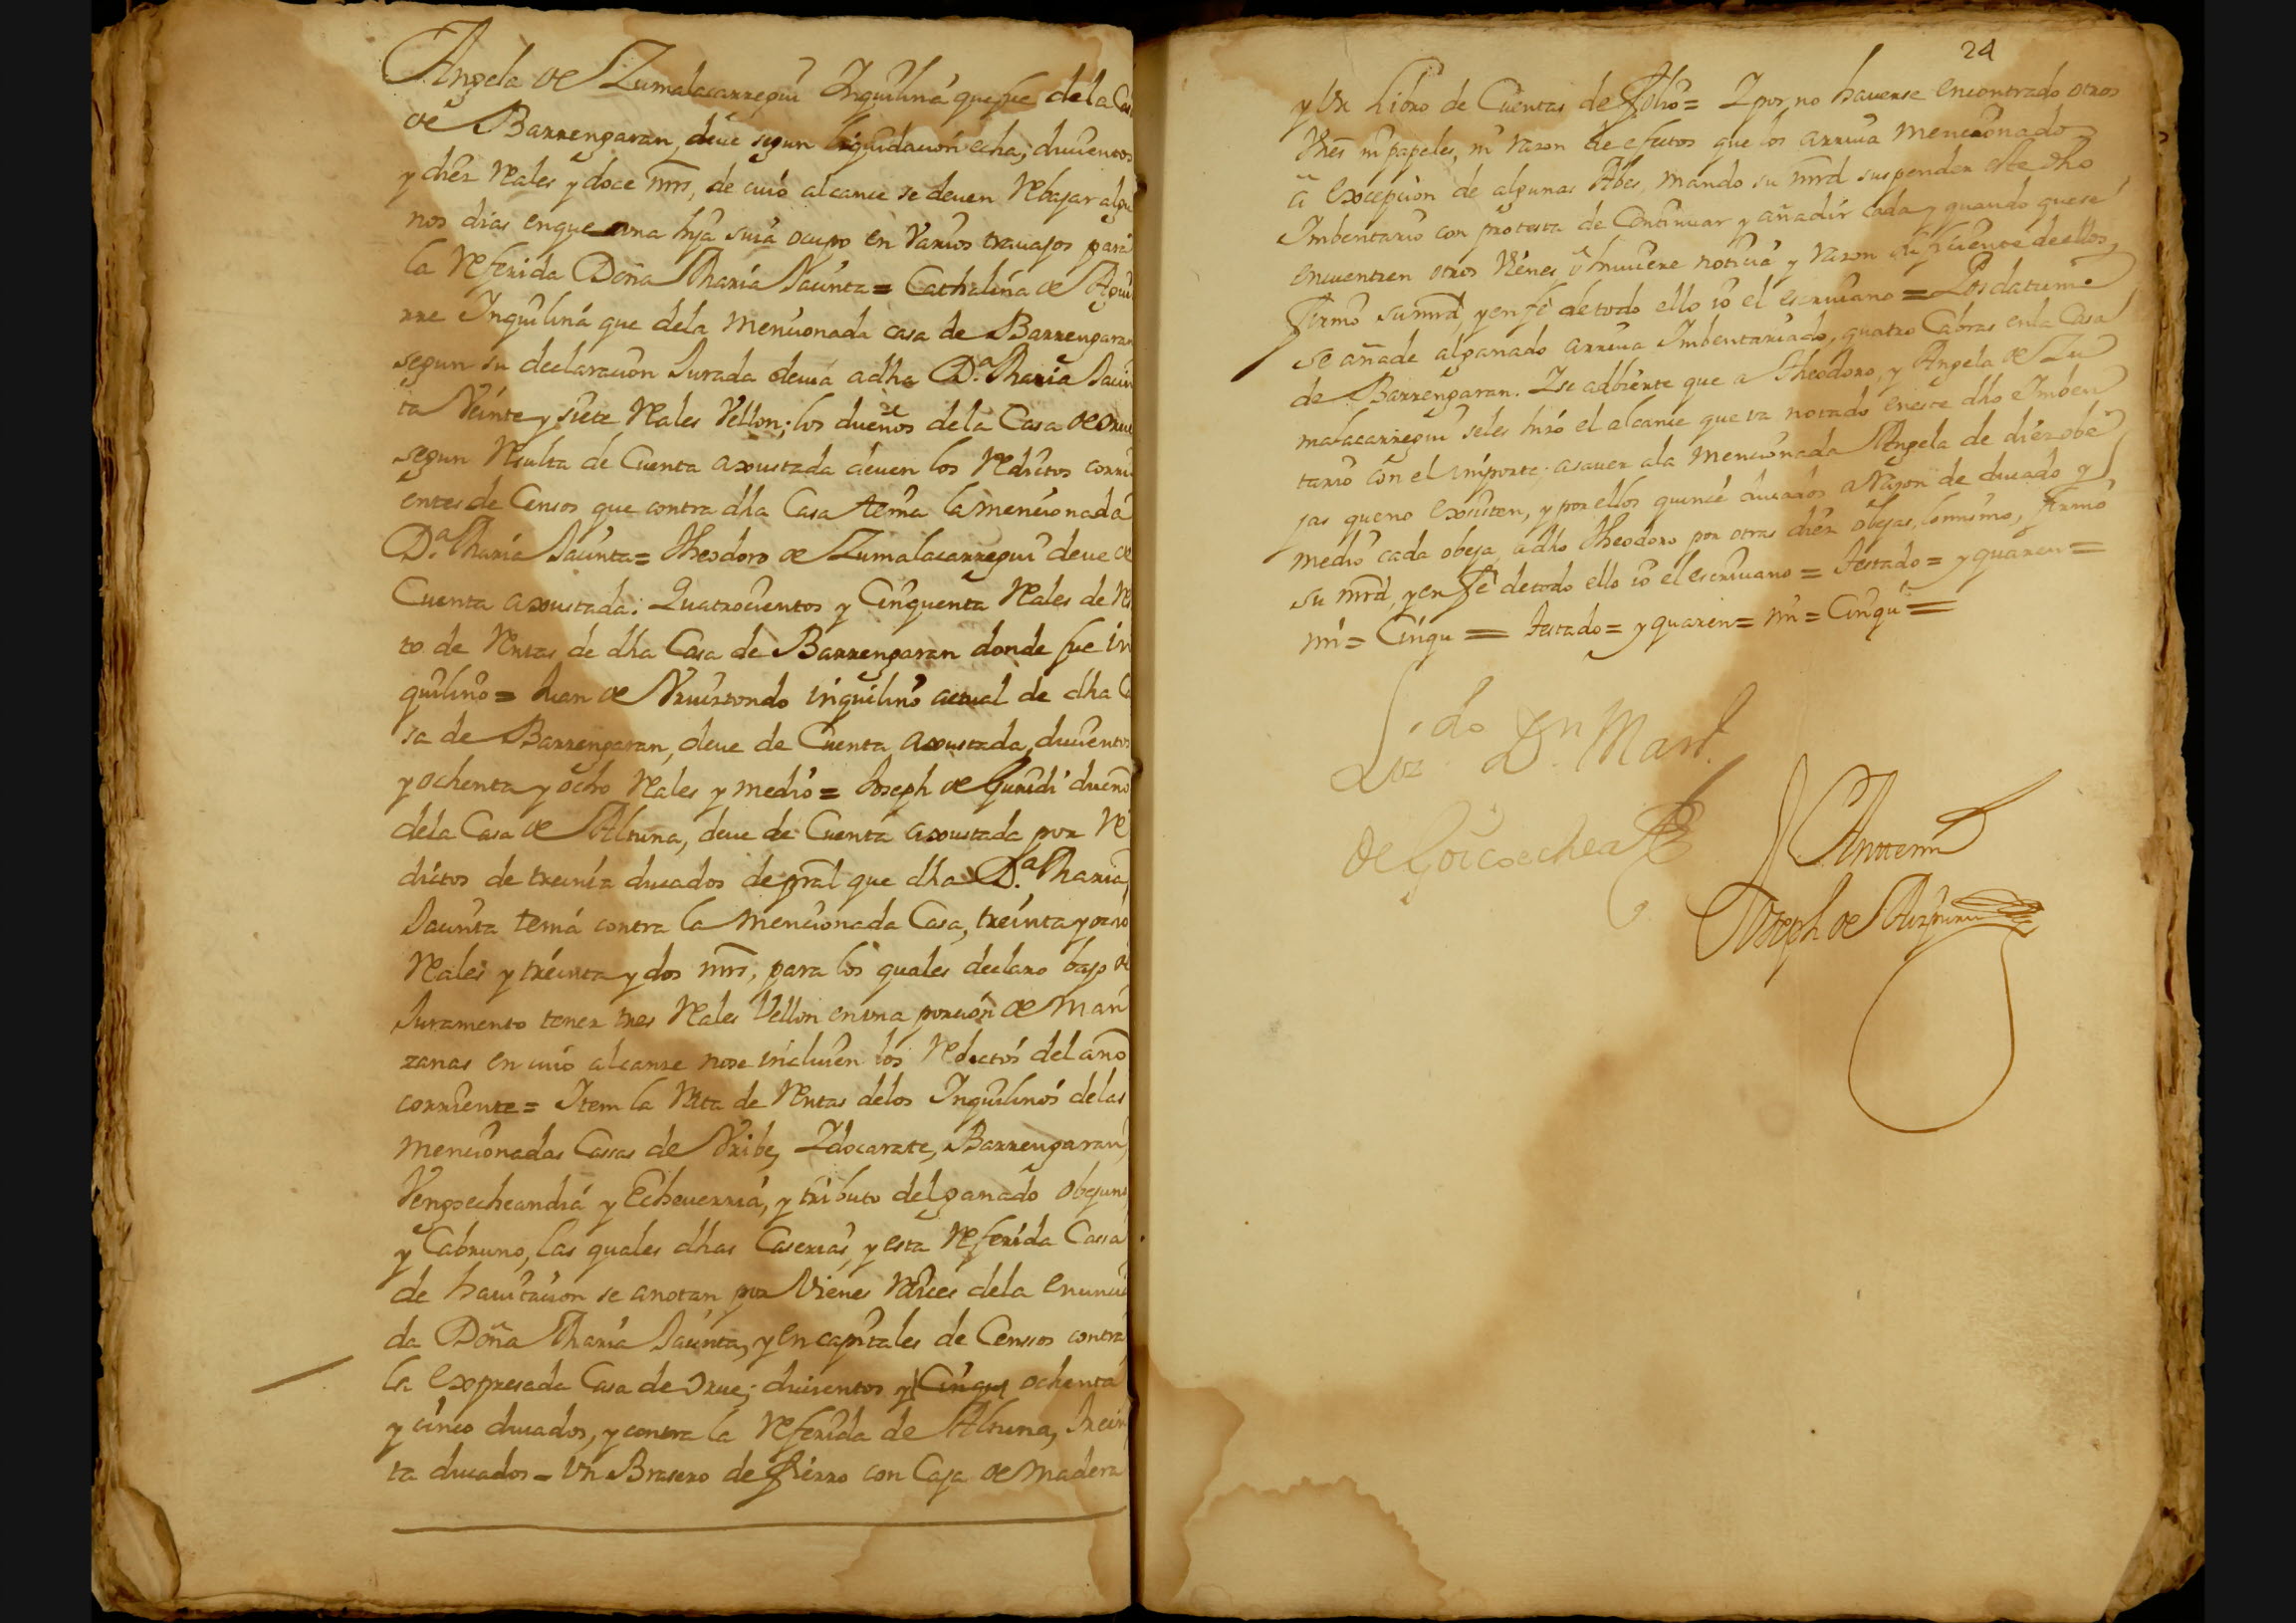 Angela de Zumalacarregui Inquilina que fue de la Ca
de Barrengaran, deve segun liquidacion echa, ducientos
y diez Reales y doce mrs, de cuio alcance se deven Rebajar algu
nos dias en que una hija suia ocupo en Varios travajos para
la Referida Doña Maria Jacinta = Cathalina de Aguir
rre Inquilina que de la mencionada casa de Barrengaran
segun su declaracion Jurada devia a dha D.ª Maria Jacin
ta Veinte y siete Reales Vellon; los dueños de la Casa de Orue
segun Resulta de Cuenta axustada deven los Reditos corri
entes de Censos que contra dha Casa tenia la mencionada
D.ª Maria Jacinta = Theodoro de Zumalacarregui deve de
Cuenta axustada: Quatrocientos y Cinquenta Reales de Res
to de Rentas de dha Casa de Barrengaran donde fue in
quilino = Juan de Vruirtondo inquilino actual de dha Ca
sa de Barrengaran, deve de Cuenta axustada, ducientos
y ochenta y ocho Reales y medio = Joseph de Guridi dueño
de la Casa de Altuna, deve de Cuenta axustada por Re
dictos de treinta ducados de pral que dha D.ª Maria
Jacinta tenia contra la mencionada Casa, treinta y ocho
Reales y treinta y dos mrs, para los quales declaro bajo de
Juramento tener tres Reales Vellon en una porcion de Man
zanas en cuio alcanze no se incluien los Redictos del año
corriente = Item la Rata de Rentas de los Inquilinos de las
mencionadas Cassas de Vribe, Ydocarate, Barrengaran,
Vengoecheandia y Echeverria, y tributo del ganado obejuno,
y Cabruno, las quales dhas Caserias, y esta Referida Cassa
de havitacion se anotan por Vienes Raices de la enuncia
da Doña Maria Jacinta, y en capitales de Censsos contra
la expresada Casa de Orue; ducientos y Cinqu ochenta
y cinco ducados, y contra la Referida de Altuna, Trein
ta ducados = Vn Brasero de fierro con Caja de madera
24
y Vn Libro de Cuentas de folio = Y por no haverse encontrado otros
Vienes ni papeles, ni razon de efectos que los arriva mencionados
a excepcion de algunas Abes, mando su mrd suspender este dho
Imbentario con protesta de Continuar y añadir cada y quando que se
encuentren otros Vienes, o huviere noticia y razon suficiente de ellos,
firmo su mrd, y en fe de todo ello io el escrivano = Posdatum =
se añade al ganado arriva Imbentariado, quatro Cabras en la Casa
de Barrengaran. Y se adbierte que a Theodoro, y Angela de Zu
malacarregui se les hizo el alcance que va notado en este dho Imben
tario con el importe; a saver a la mencionada Angela de diez obe
jas que no existen, y por ellos quince ducados a Razon de ducado y
medio cada obeja, a dho Theodoro por otras diez obejas, lo mismo, firmo
su mrd, y en fe de todo ello io el escrivano = Testado = y quaren =
mi = Cinqu = Testado = y quaren = mi = Cinqu =
Lizdo Dn Marl.
de Goicoechea
Anttemi
Joseph de Aizpuru